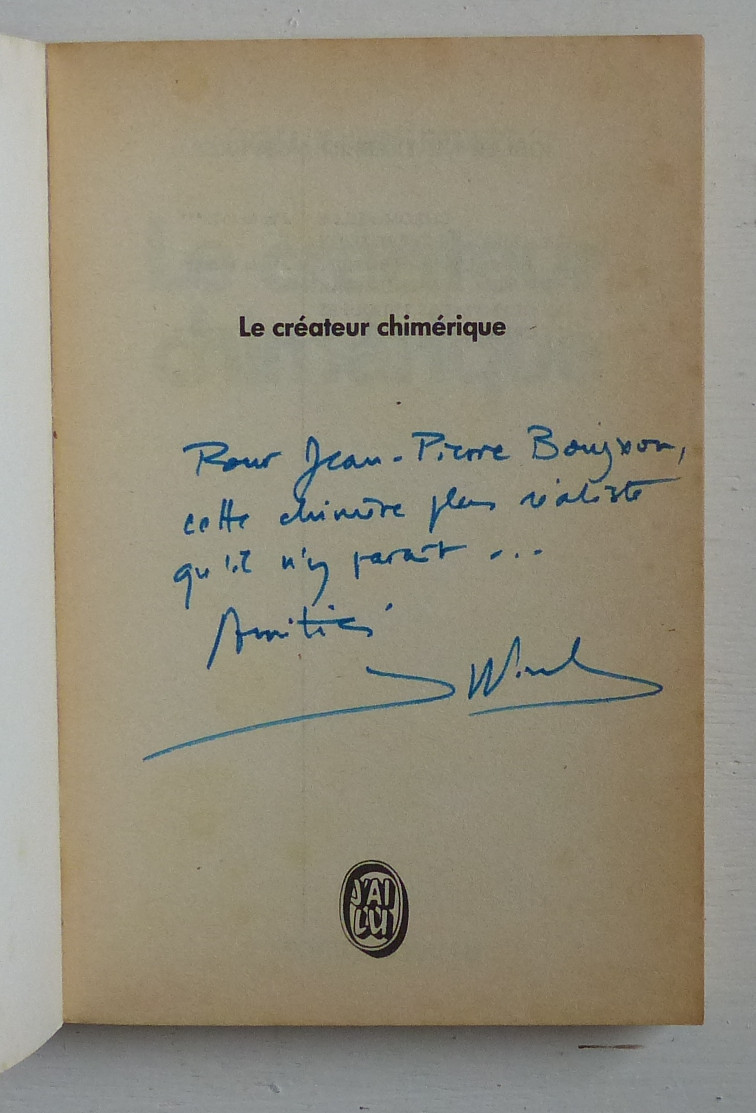 Le créateur chimérique
Pour Jean-Pierre
cette chimère plus réaliste
qu'il n'y paraît ...
Amitiés
J'AI
LU